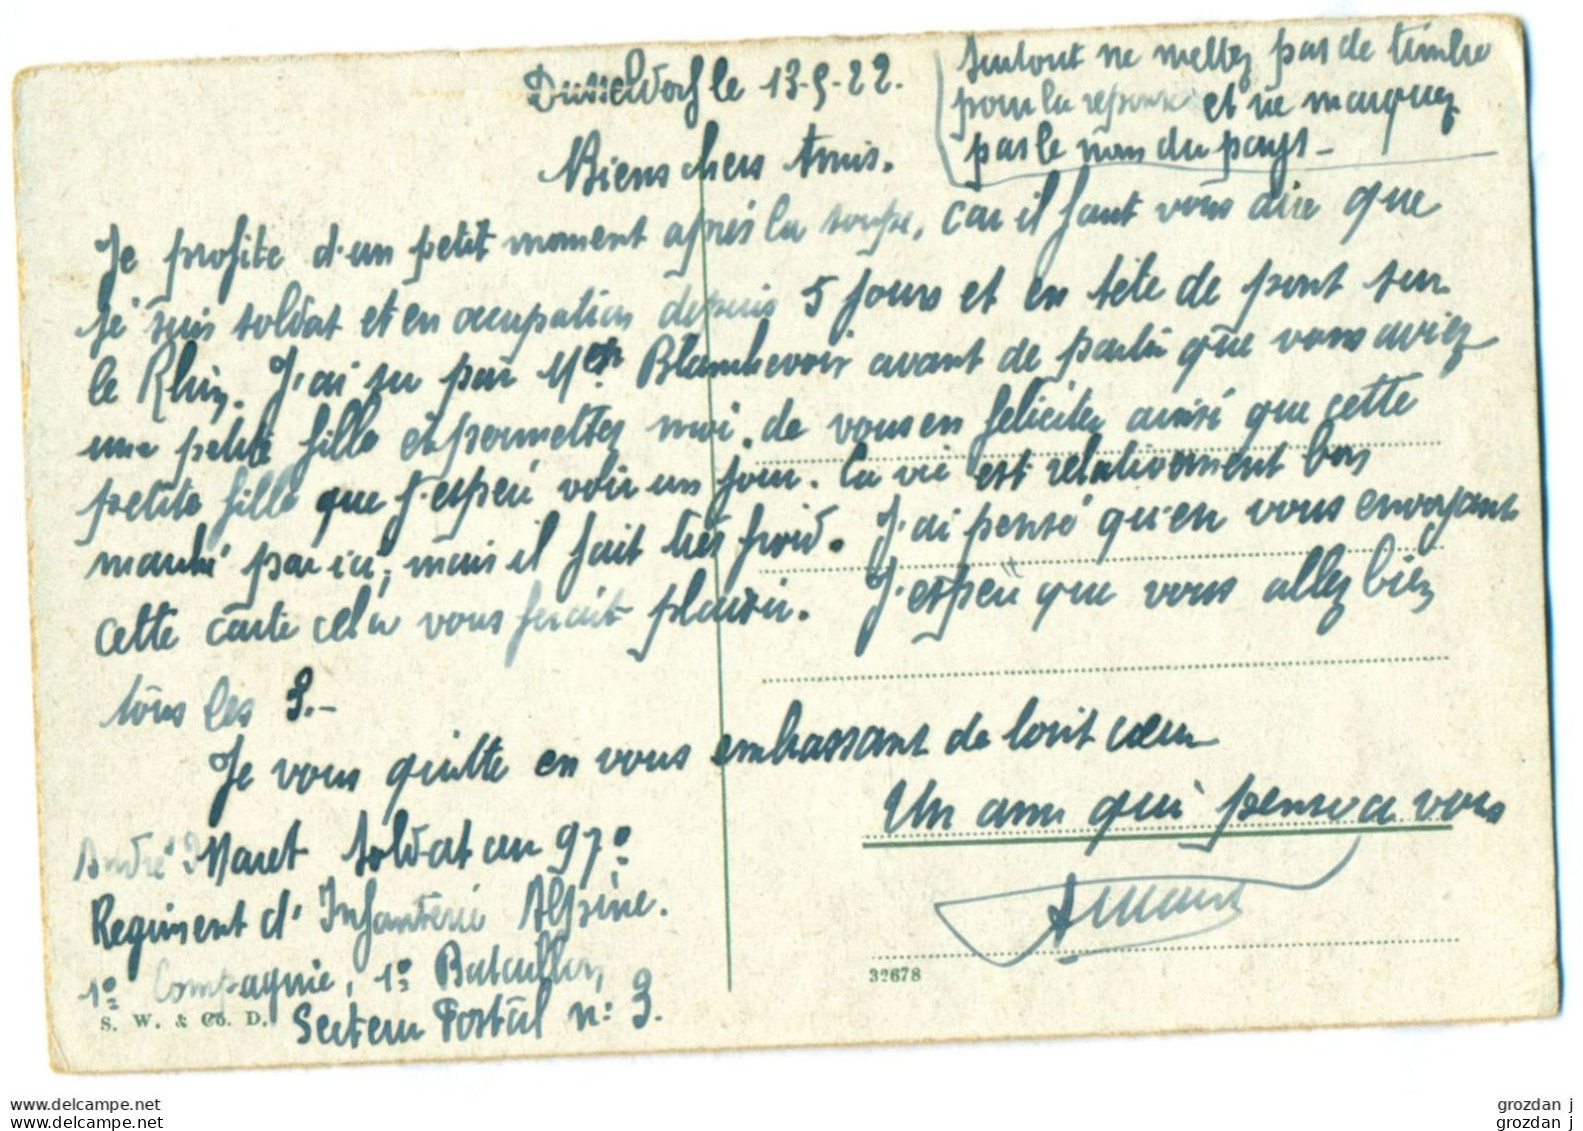 Dusseldorf le 13-5-22.
Surtout ne mettez pas de timbre
pour la reponse et ne marquez
pas le nom du pays-
Biens chers Amis.
Je profite d'un petit moment après la soupe, car il faut vous dire que
je suis soldat et en occupation depuis 5 jours et en tête de pont sur
le Rhin. J'ai su par Mer Blanchevoir avant de partir que vous aviez
une petite fille et permettez moi. de vous en feliciter ainsi que cette
petite fille que j'espere voir un jour. La vie est relativement bon
marché par ici, mais il fait très froid. J'ai pensé qu'en vous envoyant
cette carte cela vous ferait plaisir. J'espere que vous allez bien
tous les 3.-
Je vous quitte en vous embrassant de tout cœur
Un ami qui pense a vous
André Maret soldat au 97º
Regiment d'Infanterie Alpine.
1º Compagnie, 1º Bataillon,
Secteur Postal n: 3.
AMaret
32678
S. W. & Co. D.
www.delcampe.net
www.delcampe.net
grozdan j
grozdan j